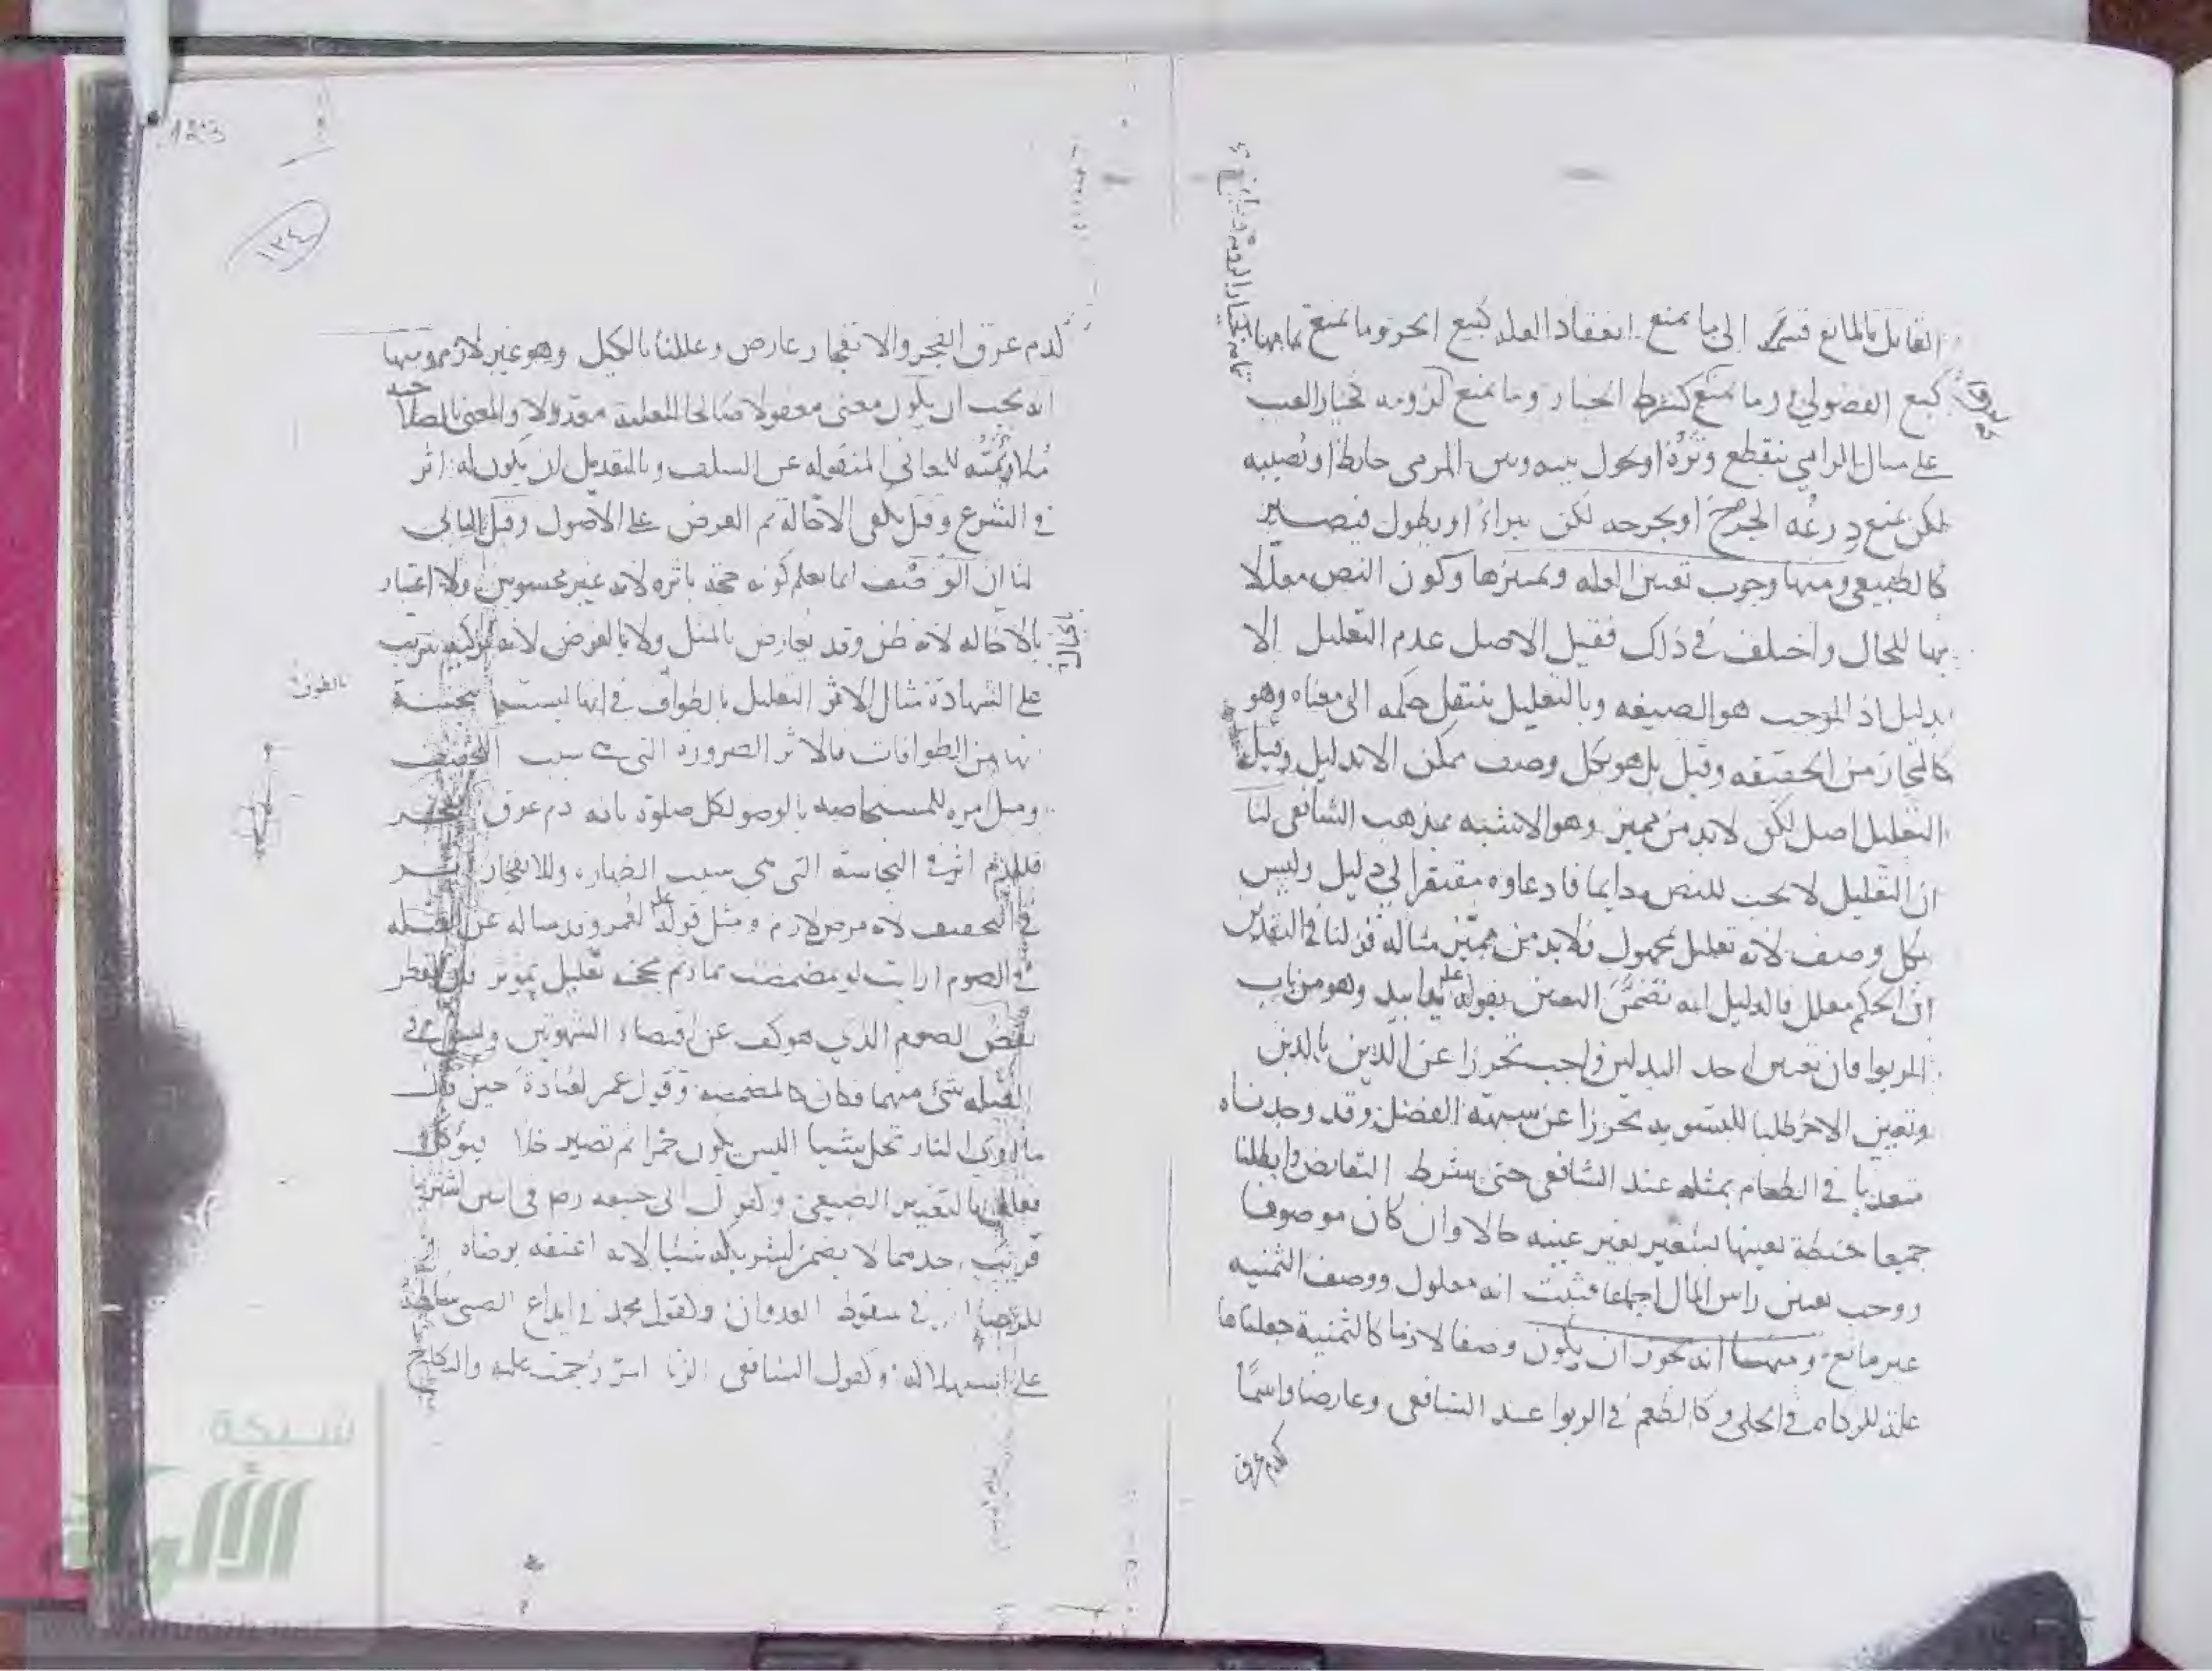 القائل بالمانع قسمه الى ما يمنع انعقاد العلة كبيع الحر وما يمنع تمامها
كبيع الفضولي وما يمنع كشرط الخيار وما يمنع لزومه كخيار العيب
على مثال الرامي ينقطع وتره او يحول بينه وبين المرمى حايط او تصيبه
لكن يمنع درعه الجرح او يجرحه لكن يبراء او يطول فيصير
كالطبيعي ومنها وجوب تعيين العلة وتمييزها وكون النص معللا
بها للحال واختلف في ذلك فقيل الاصل عدم التعليل الا
بدليل اذ الموجب هو الصيغه وبالتعليل ينتقل حكمه الى معناه وهو
كالمجاز من الحقيقه وقيل بل هو بكل وصف ممكن الا بدليل وقيل
التعليل اصل لكن لا بد من مميز وهو الاشبه بمذهب الشافعي لنا
ان التعليل لا يجب للنص دايما فادعاوه مفتقر الى دليل وليس
بكل وصف لانه تعليل بمجهول فلا بد من مميز مثاله قولنا في النقدين
ان الحكم معلل فالدليل انه تضمن التعيين بقوله يدا بيد وهو من باب
الربوا فان تعيين احد البدلين واجب تحرزا عن الدين بالدين
وتعيين الاخر طلبا للتسويه تحرزا عن شبهة الفضل وقد وجدناه
متعديا في الطعام بمثله عند الشافعي حتى شرط التقابض وابطلنا
جميعا حنطة بعينها بشعير بغير عينه حالا وان كان موصوفا
ووجب تعيين راس المال اجماعا فثبت انه معلول ووصف الثمنيه
غير مانع ومنها انه يجوز ان يكون وصفا لازما كالثمنية جعلناها
علة للزكاه في الحلى وكالطعم في الربوا عند الشافعي وعارضا واسما
كدم عرق
١٢٤
كدم عرق انفجر والانفجار عارض وعللنا بالكيل وهو غير لازم ومنها
انه يجب ان يكون معنى معقولا صالحا للعلية معدولا والمعنى بالصلاحيه
ملاءمته للمعاني المنقوله عن السلف وبالتعديل ان يكون له اثر
في الشرع وقيل يكفي الاخالة ثم العرض على الاصول وقيل
لنا ان الوصف انما يعلم كونه حجة باثره لانه غير محسوس ولا اعتبار
بالاخاله لانه ظن وقد يعارض بالمثل ولا بالعرض لانه
على الشهادة مثال الاثر التعليل بالطواف في انها ليست بنجسة
من الطوافات فالاثر الضرورة التي هي سبب التخفيف
ومثل امره للمستحاضه بالوضو لكل صلوة بانه دم عرق انفجر
فللدم اثر في النجاسة التي هي سبب الطهاره وللانفجار
في التخفيف لانه مرض لازم ومثل قوله لعمر وقد ساله عن القبله
في الصوم ارايت لو تمضمضت بماء ثم مججته تعليل بمؤثر فان الفطر
نقض الصوم الذي هو كف عن اقتضاء الشهوتين وليس في
القبله شيء منهما فكان كالمضمضه وقول عمر لعبادة حين قال
ما ارى النار تحل شيا اليس يكون خمرا ثم تصير خلا فيؤكل
فعلل بالتغير الطبيعي وكقول ابي حنيفه رضه في اثنين اشتريا
قريب احدهما لا يضمن لشريكه شيئا لانه اعتقه برضاه
للرضا اثر في سقوط العدوان وكقول محمد في ايداع الصبي سلطه
على استهلاكه وكقول الشافعي الزنا امر رجمت عليه والنكاح